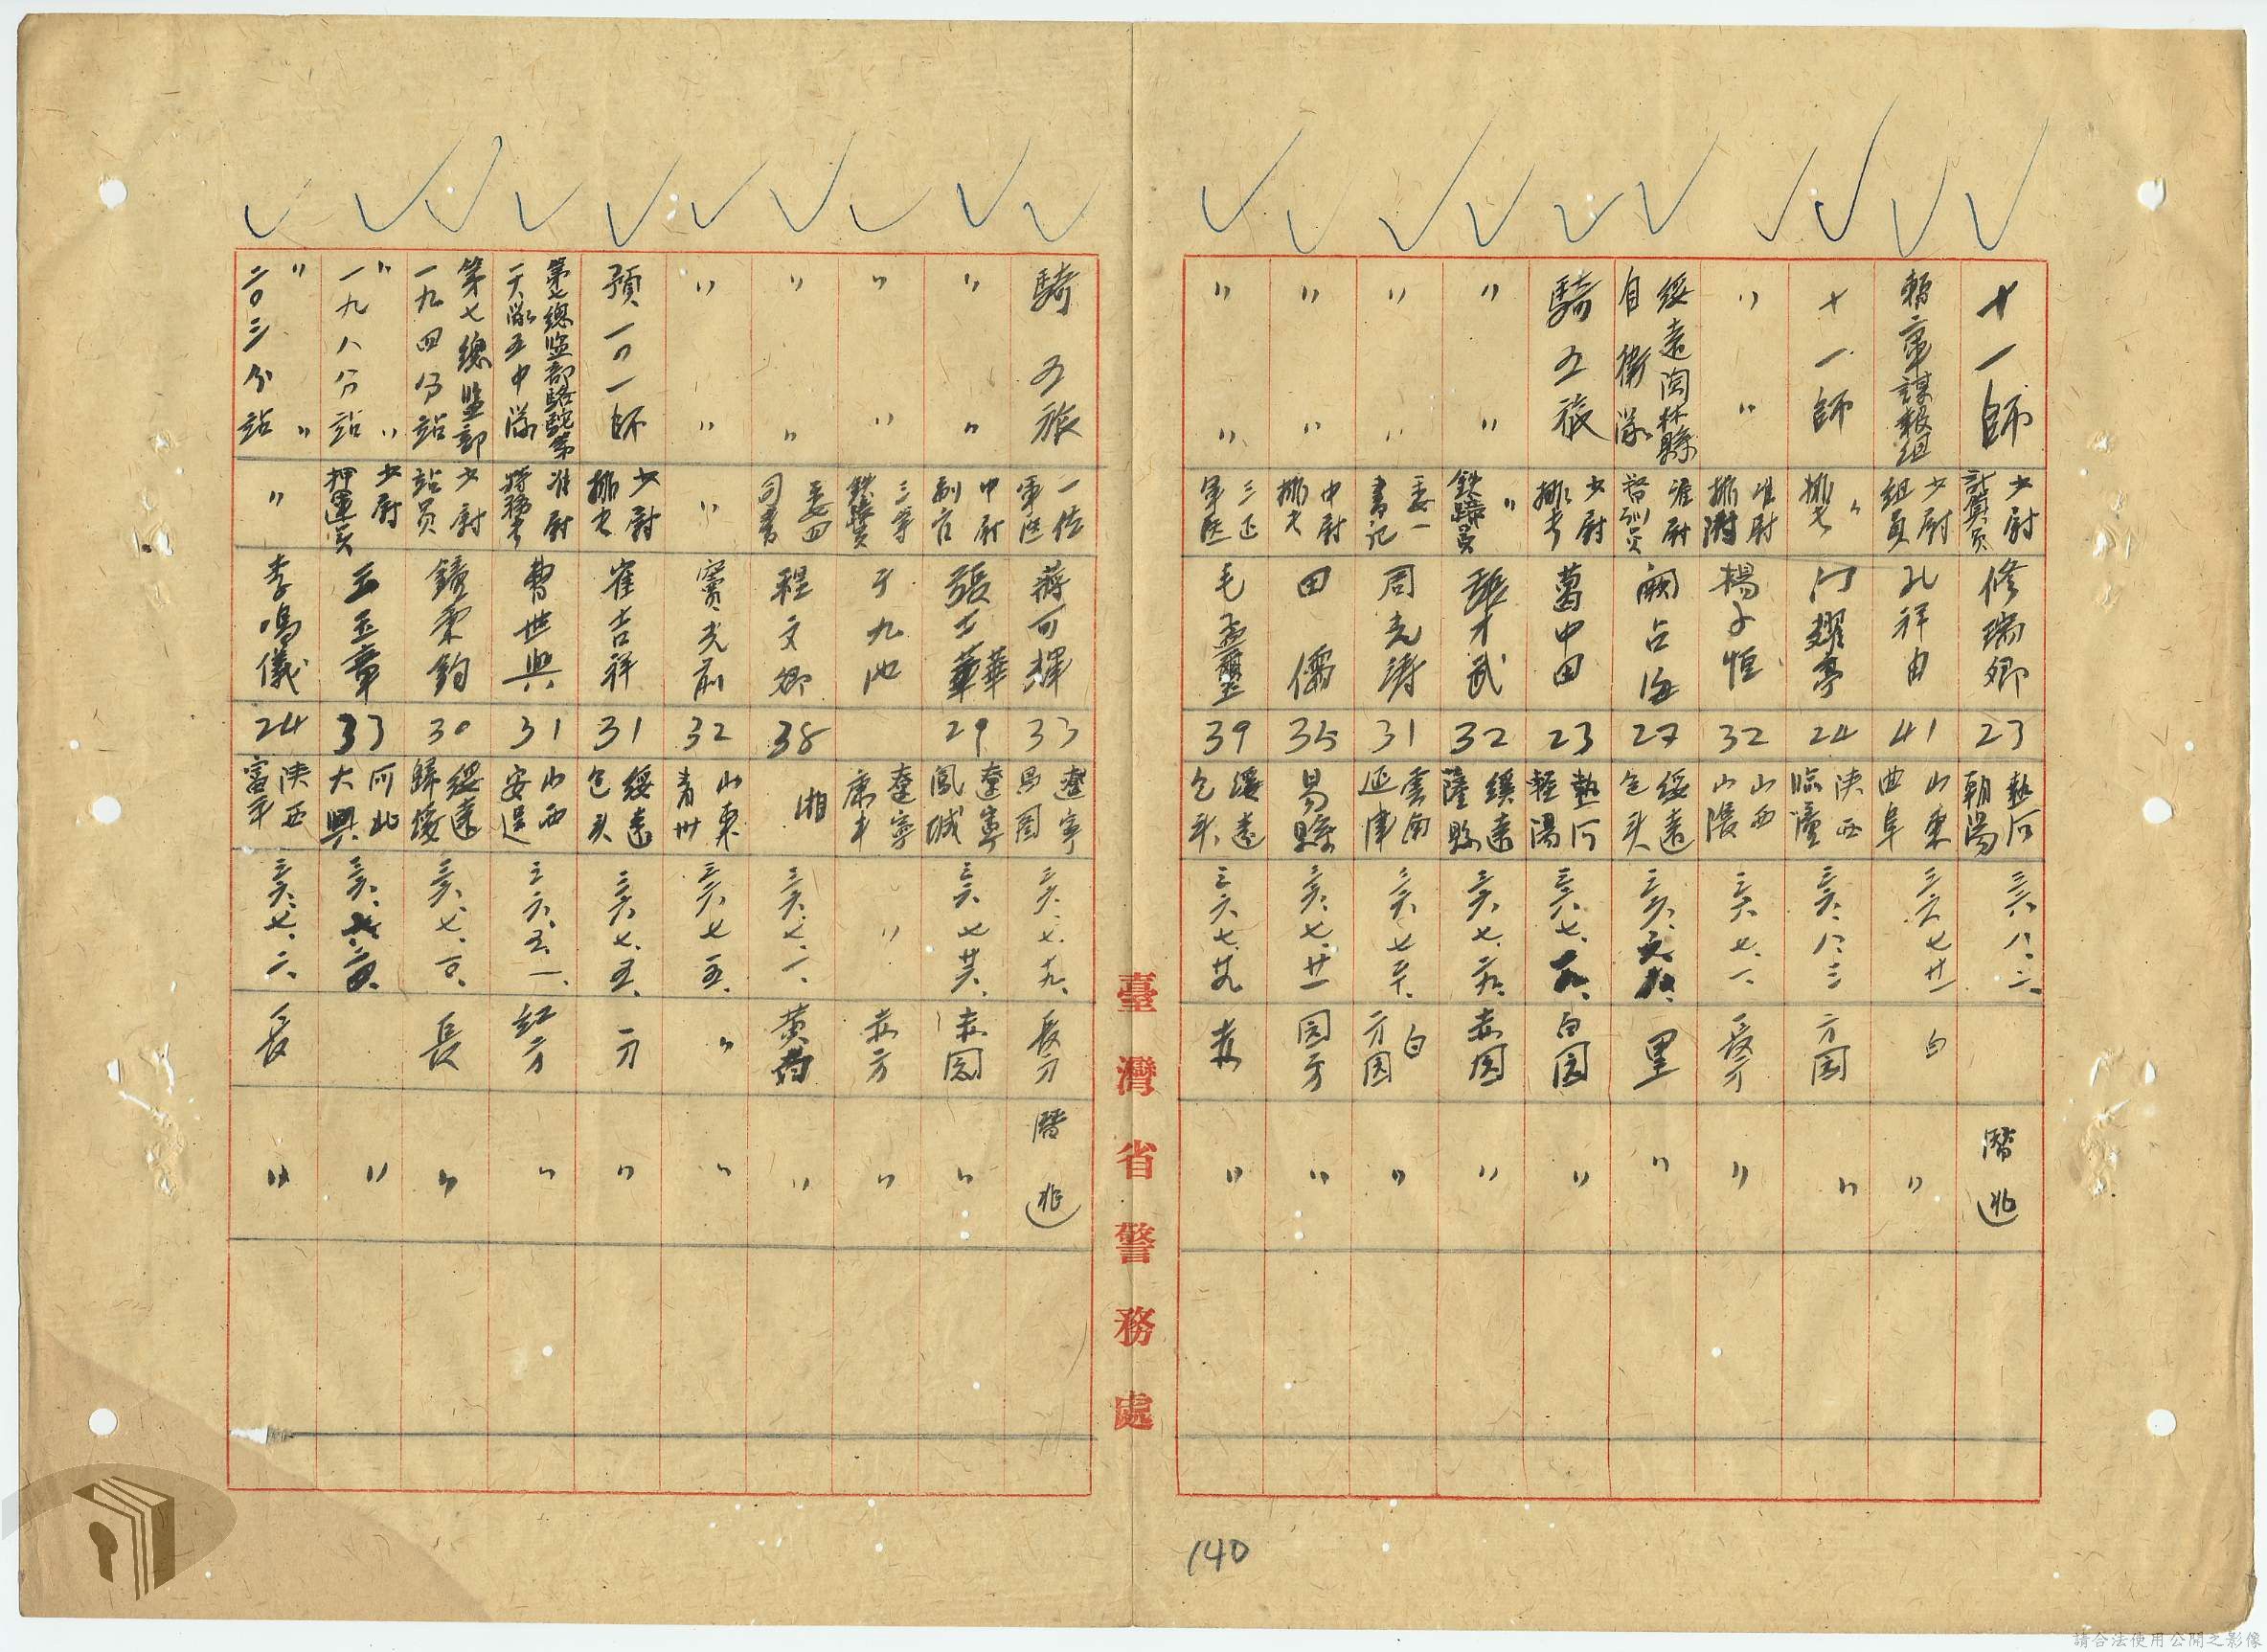 十一師 少尉計算員 修瑞卿 23 熱河朝陽 三六、八、二、 潛逃
暫二軍諜報組 少尉組員 孔祥由 41 山東曲阜 三六七廿一 白 〃
十一師 〃排長 门耀亭 24 陕西臨潼 三六、八、三 方园 〃
〃 〃 准尉排附 楊子恒 32 山西山陰 三六、七、一、 長方 〃
綏遠陶林縣自衛隊 准尉督训员 闞占海 27 綏遠包头 里 〃
騎五旅 少尉排長 葛中田 23 熱河 三六、七、一九、 白园 〃
〃 〃 〃鉄蹄員 張才武 32 綏遠薩縣 三六、七、二九、 赤园 〃
〃 〃 委一書记 周克濤 31 雲南延津 三六七、 白方园 〃
〃 〃 中尉排长 田儒 35 易縣 三六、七、廿一 园方 〃
〃 〃 三正軍医 毛 39 綏遠包头 三六七、廿九 〃
騎五旅 一佐軍医 蔣可輝 33 遼寧昌圖 三六、七、十九、 長方 潛逃
〃 〃 中尉副官 張士華 29 遼寧鳳城 三六、七廿六、 赤园 〃
〃 〃 三等鉄蹄員 于九池 遼寧康平 〃 赤方 〃
〃 〃 委四司書 程文卿 38 湘 三六、七、一、 黄 〃
〃 〃 〃 竇光前 32 山東青州 三六、七五、 〃 〃
預一0一師 少尉排长 崔吉祥 31 綏遠包头 三六、七、五、 方 〃
第七總监部駱駝第一大隊五中隊 准尉特務長 曹世興 31 山西安邑 三六、五、一、 红方 〃
第七總监部一九四分站 少尉站员 鐃秉鈞 30 綏遠歸綏 三六、七、 長 〃
〃 〃一九八分站 少尉押運員 王玉章 33 河北大興 三六、七、 〃
〃 〃二0三分站 〃 李鳴儀 24 陕西富平 三六、七、二、 長 〃
臺灣省警務處
140
請合法使用公開之影像